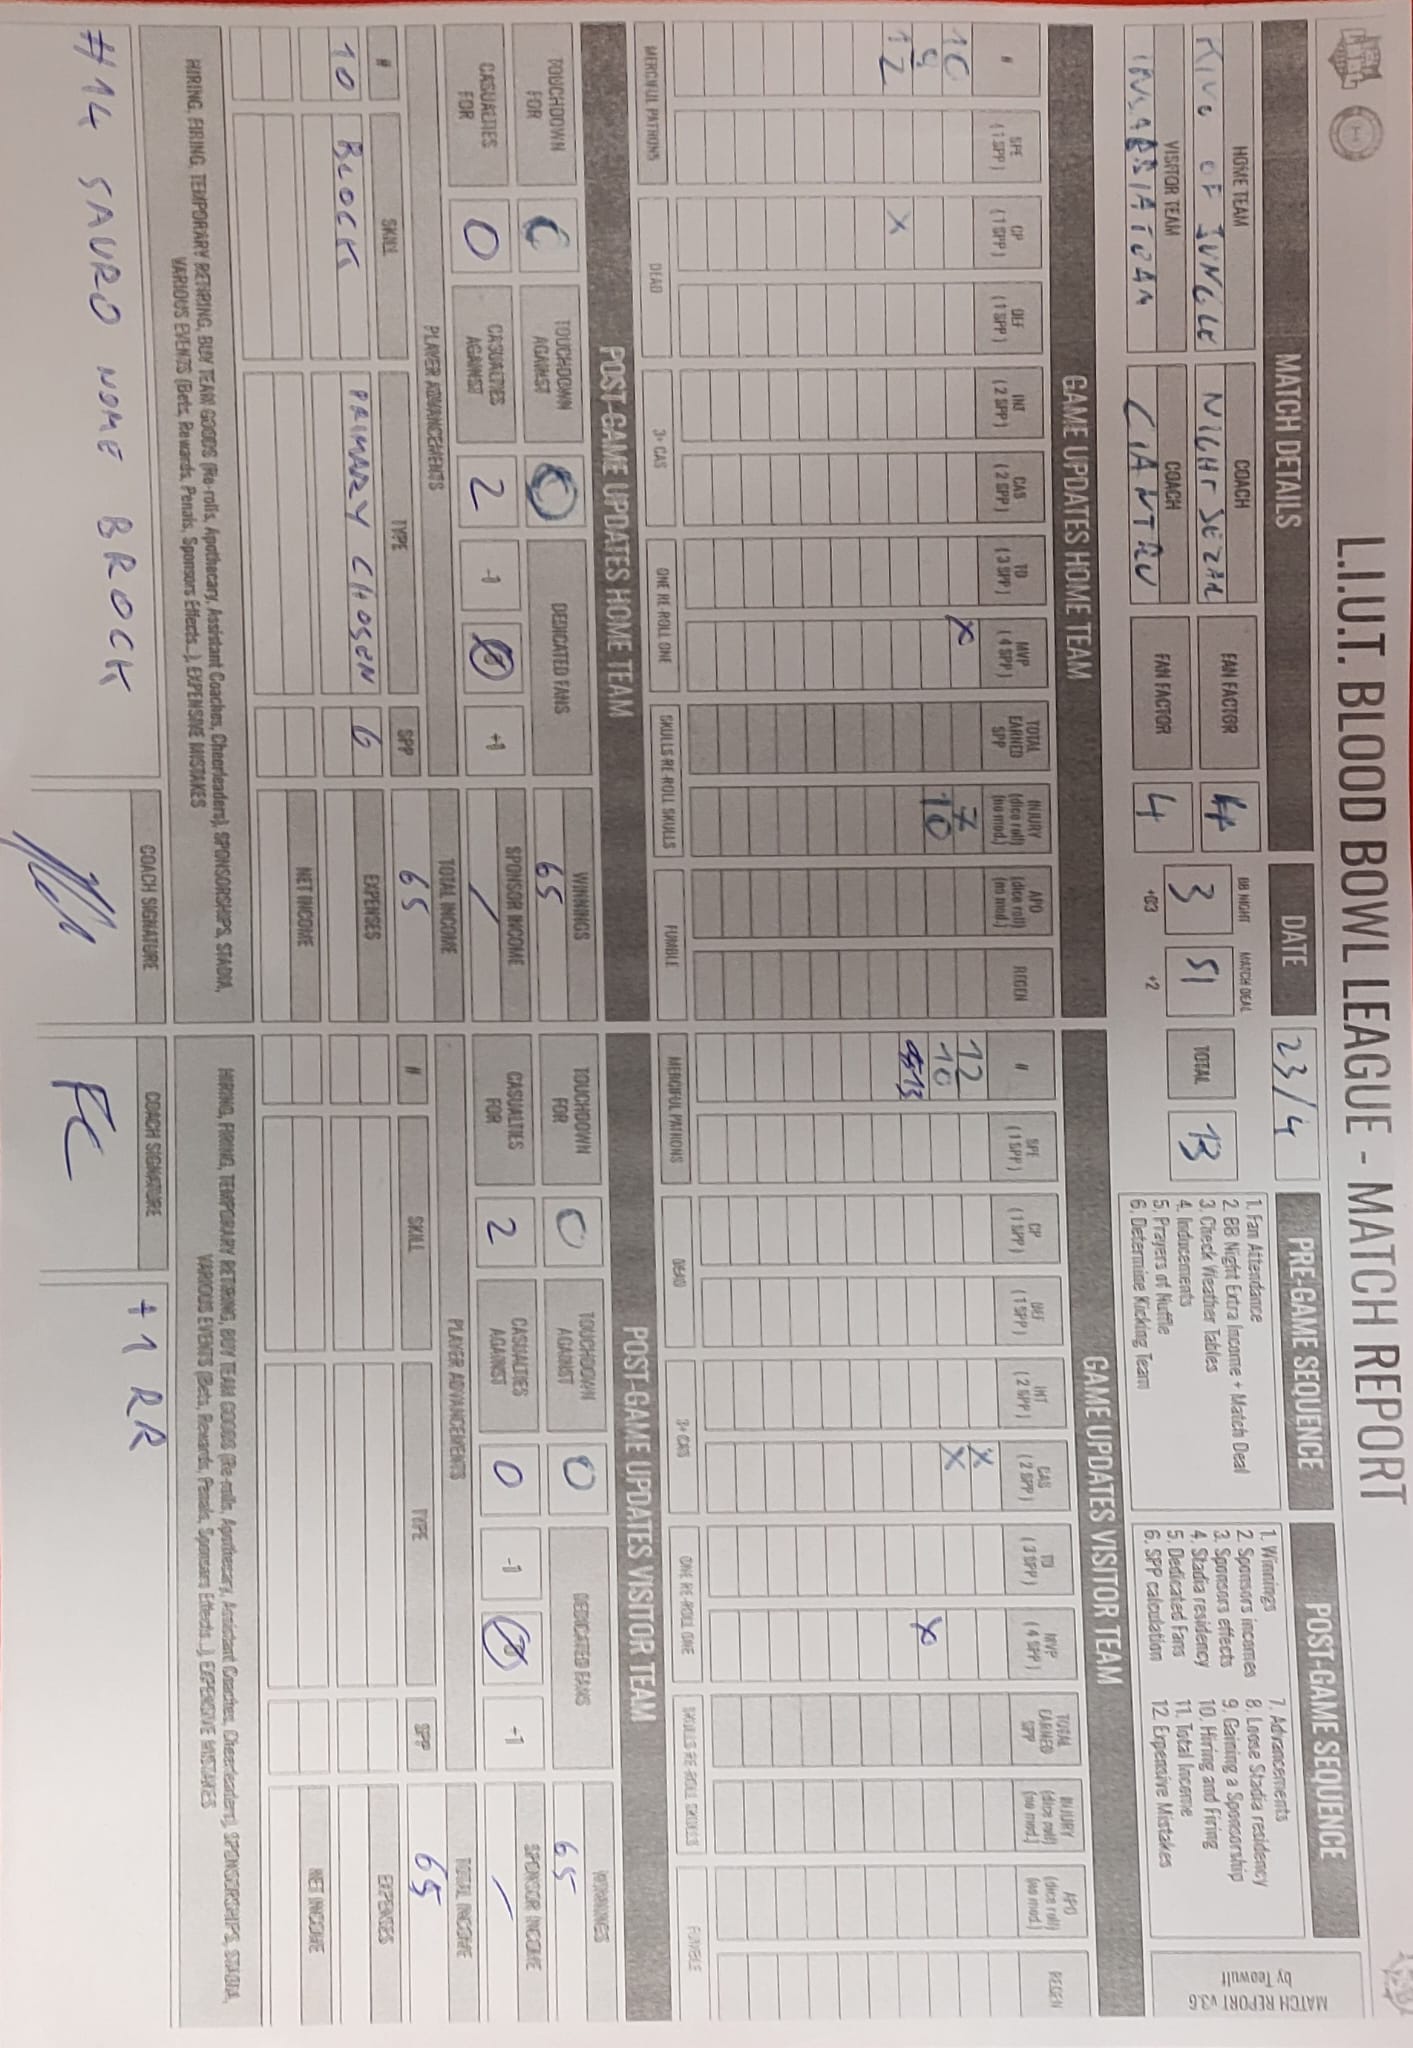 L.I.U.T. BLOOD BOWL LEAGUE - MATCH REPORT
MATCH DETAILS
DATE
23/4
PRE-GAME SEQUENCE
POST-GAME SEQUENCE
HOME TEAM
COACH
FAN FACTOR
KING OF JUNGLE
NIGHT
4
VISITOR TEAM
COACH
FAN FACTOR
CIANTRU
4
BB NIGHT
MATCH DEAL
TOTAL
3
SI
13
+03
+2
1. Fan Attendance
2. BB Night Extra Income + Match Deal
3. Check Weather Tables
4. Inducements
5. Prayers of Nuffle
6. Determine Kicking Team
1. Winnings
2. Sponsors incomes
3. Sponsors effects
4. Stadia residency
5. Dedicated Fans
6. SPP calculation
7. Advancements
8. Loose Stadia residency
9. Gaining a Sponsorship
10. Hiring and Firing
11. Total Income
12. Expensive Mistakes
MATCH REPORT v3.6
by Teowulf
GAME UPDATES HOME TEAM
# SPE (1 SPP) CP (1 SPP) DEF (1 SPP) INT (2 SPP) CAS (2 SPP) TD (3 SPP) MVP (4 SPP) TOTAL EARNED SPP INJURY (dice roll) (no mod.) APO (dice roll) (no mod.) REGEN
10 X 7
9 10
12 X
MERCIFUL PATRONS DEAD 3+ CAS ONE RE-ROLL ONE SKULLS RE-ROLL SKULLS FUMBLE
GAME UPDATES VISITOR TEAM
# SPE (1 SPP) CP (1 SPP) DEF (1 SPP) INT (2 SPP) CAS (2 SPP) TD (3 SPP) MVP (4 SPP) TOTAL EARNED SPP INJURY (dice roll) (no mod.) APO (dice roll) (no mod.) REGEN
12 X
10 X
13 X
MERCIFUL PATRONS DEAD 3+ CAS ONE RE-ROLL ONE SKULLS RE-ROLL SKULLS FUMBLE
POST-GAME UPDATES HOME TEAM
TOUCHDOWN FOR 0 TOUCHDOWN AGAINST 0 DEDICATED FANS WINNINGS
65
CASUALTIES FOR 0 CASUALTIES AGAINST 2 -1 0 +1 SPONSOR INCOME
/
PLAYER ADVANCEMENTS TOTAL INCOME
# SKILL TYPE SPP 65
10 BLOCK PRIMARY CHOSEN 6 EXPENSES
NET INCOME
HIRING, FIRING, TEMPORARY RETIRING, BUY TEAM GOODS (Re-rolls, Apothecary, Assistant Coaches, Cheerleaders), SPONSORSHIPS, STADIA,
VARIOUS EVENTS (Bets, Rewards, Penals, Sponsors Effects...), EXPENSIVE MISTAKES
COACH SIGNATURE
#14 SAURO NOME BROCK
POST-GAME UPDATES VISITOR TEAM
TOUCHDOWN FOR 0 TOUCHDOWN AGAINST 0 DEDICATED FANS WINNINGS
65
CASUALTIES FOR 2 CASUALTIES AGAINST 0 -1 0 +1 SPONSOR INCOME
/
PLAYER ADVANCEMENTS TOTAL INCOME
# SKILL TYPE SPP 65
EXPENSES
NET INCOME
HIRING, FIRING, TEMPORARY RETIRING, BUY TEAM GOODS (Re-rolls, Apothecary, Assistant Coaches, Cheerleaders), SPONSORSHIPS, STADIA,
VARIOUS EVENTS (Bets, Rewards, Penals, Sponsors Effects...), EXPENSIVE MISTAKES
COACH SIGNATURE
FC
+1 RR